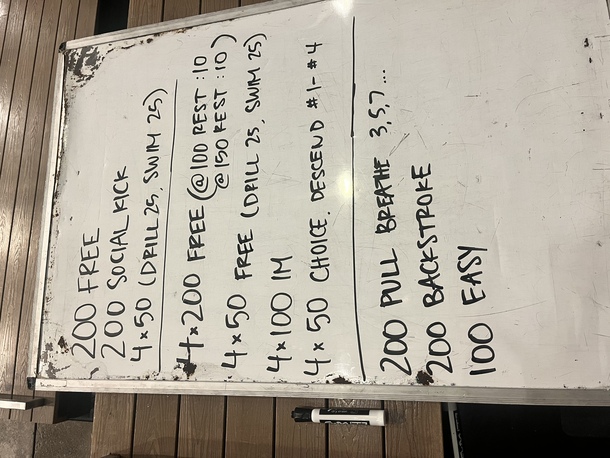 200 FREE
200 SOCIAL KICK
4×50 (DRILL 25, SWIM 25)
4×200 FREE (@100 REST :10
@150 REST :10)
4×50 FREE (DRILL 25, SWIM 25)
4×100 IM
4×50 CHOICE. DESCEND #1-#4
200 PULL BREATHE 3,5,7...
200 BACKSTROKE
100 EASY